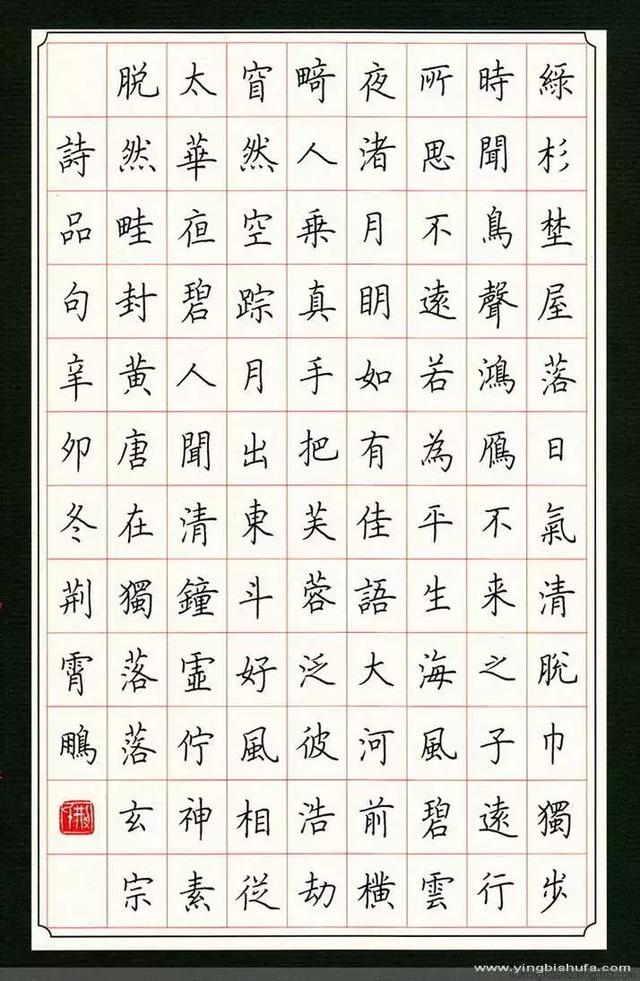 綠杉埜屋落日氣清脫巾獨步
時聞鳥聲鴻鴈不来之子遠行
所思不遠若為平生海風碧雲
夜渚月明如有佳語大河前橫
畸人乗真手把芙蓉泛彼浩劫
窅然空踪月出東斗好風相從
太華夜碧人聞清鐘虛佇神素
脱然畦封黄唐在獨落落玄宗
詩品句辛卯冬荆霄鵬
www.yingbishufa.com